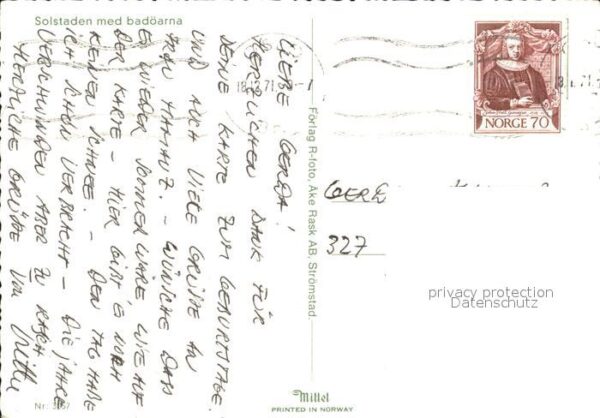 Solstaden med badöarna
LIEBE GERDA!
HERZLICHEN DANK FÜR
DEINE KARTE ZUM GEBURTSTAGE
UND AUCH VIELE GRÜßE AN
FRAU . – WÜNSCHE DASS
ES WIEDER SOMMER WÄRE WIE AUF
DER KARTE – HIER GIBT ES NOCH
KEINEN SCHNEE. – DEN TAG HABE
ICH SCHON VERBRACHT – DIE JAHRE
VERSCHWINDEN ABER ZU RASCH
HERZLICHE GRÜßE VON
Nr: 3167
Förlag R-foto, Åke Rask AB, Strömstad.
18 71
NORGE 70
GERD
327
privacy protection
Datenschutz
Mittet
PRINTED IN NORWAY